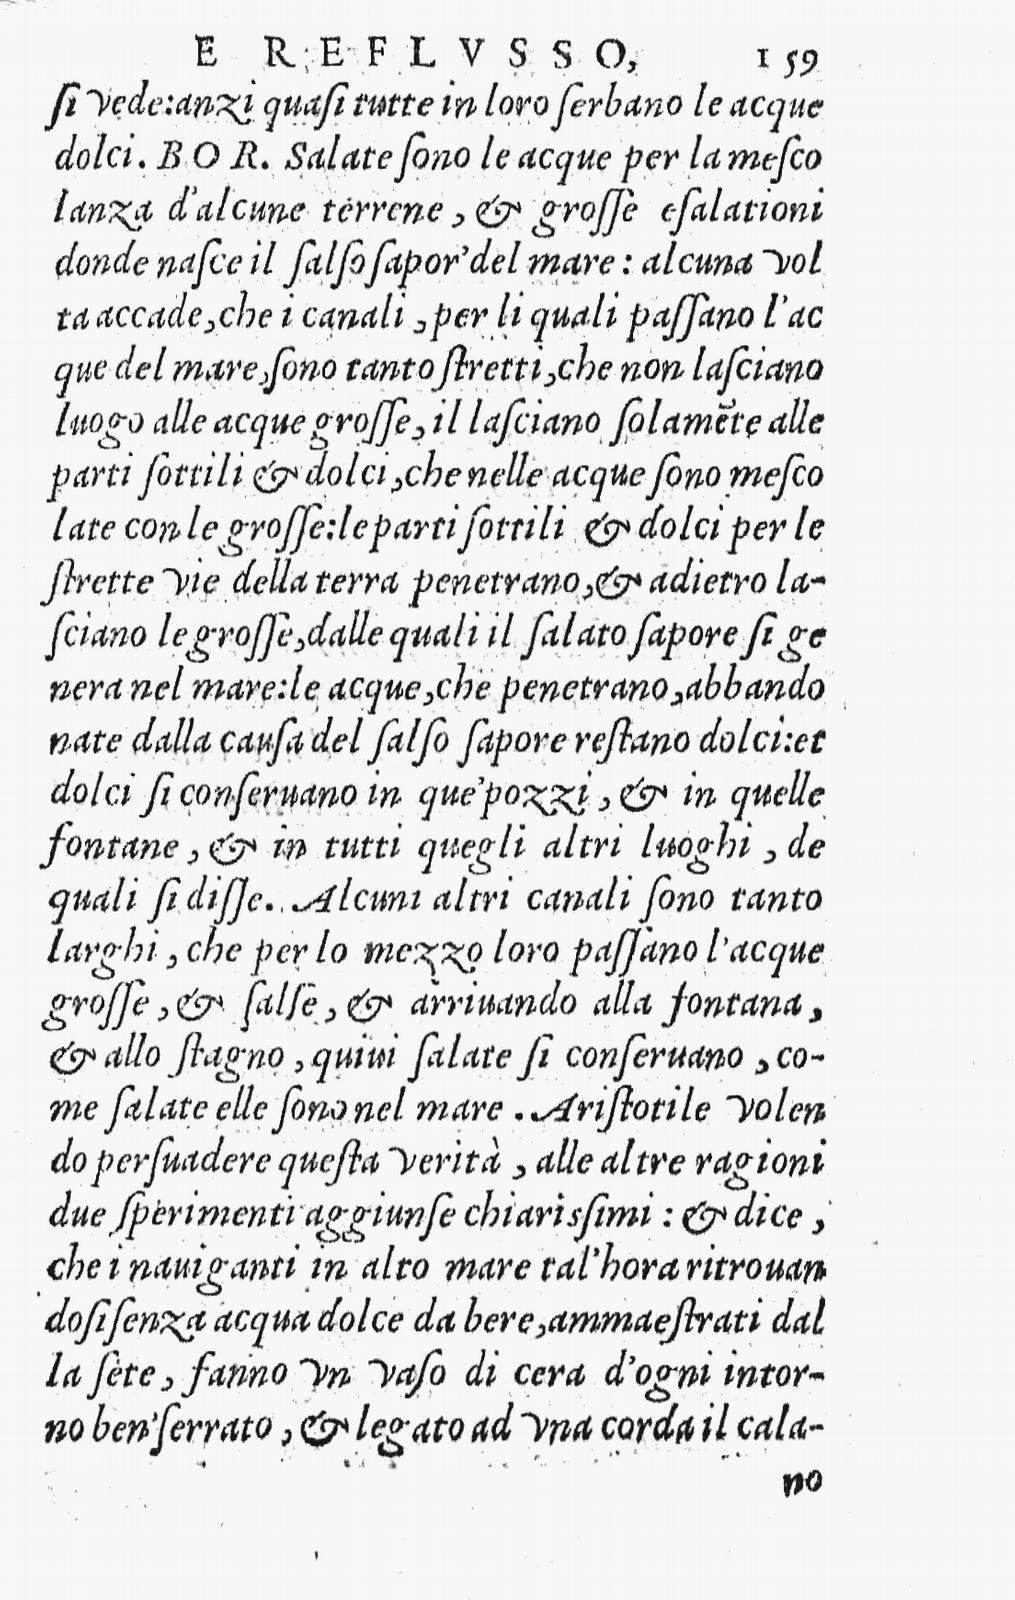 E REFLVSSO, 159
ſi vede:anzi quaſi tutte in loro ſerbano le acque
dolci. BOR. Salate ſono le acque per la meſco
lanza d'alcune terrene, & groſſe eſalationi
donde naſce il ſalſo ſapor' del mare: alcuna vol
ta accade, che i canali, per li quali paſſano l'ac
que del mare, ſono tanto ſtretti, che non laſciano
luogo alle acque groſſe, il laſciano ſolamẽte alle
parti ſottili & dolci, che nelle acque ſono meſco
late con le groſſe: le parti ſottili & dolci per le
ſtrette vie della terra penetrano, & adietro la-
ſciano le groſſe, dalle quali il ſalato ſapore ſi ge
nera nel mare: le acque, che penetrano, abbando
nate dalla cauſa del ſalſo ſapore reſtano dolci: et
dolci ſi conſeruano in que' pozzi, & in quelle
fontane, & in tutti quegli altri luoghi, de
quali ſi diſſe. Alcuni altri canali ſono tanto
larghi, che per lo mezzo loro paſſano l'acque
groſſe, & ſalſe, & arriuando alla fontana,
& allo ſtagno, quiui ſalate ſi conſeruano, co-
me ſalate elle ſono nel mare. Ariſtotile volen
do perſuadere queſta verità, alle altre ragioni
due ſperimenti aggiunſe chiarisſimi: & dice,
che i nauiganti in alto mare tal'hora ritrouan
doſi ſenza acqua dolce da bere, ammaeſtrati dal
la ſete, fanno vn vaſo di cera d'ogni intor-
no ben' ſerrato, & legato ad vna corda il cala-
no